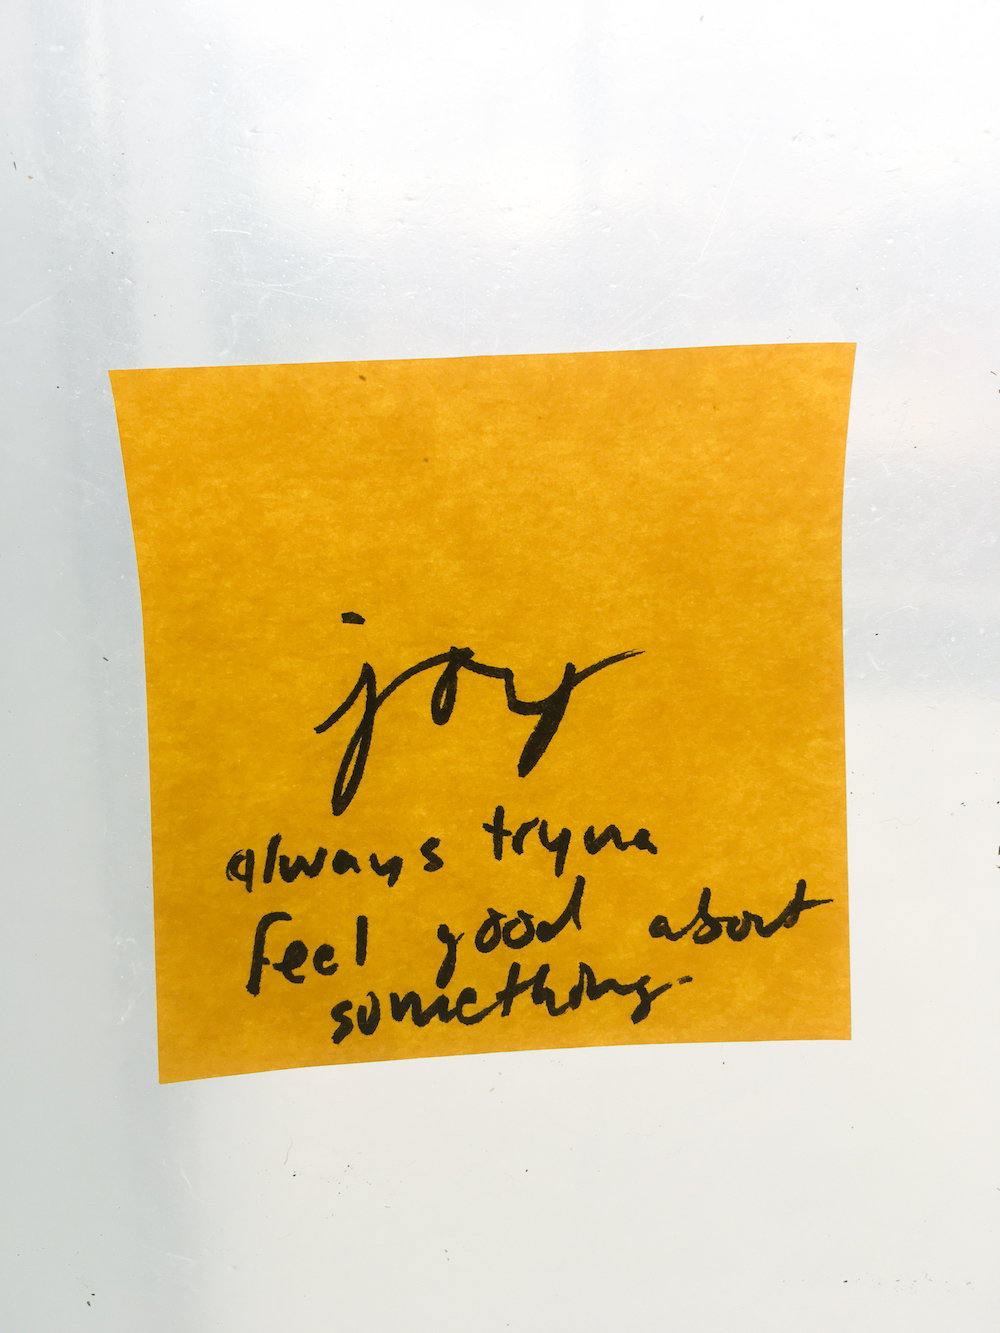 joy
always tryna
feel good about
something